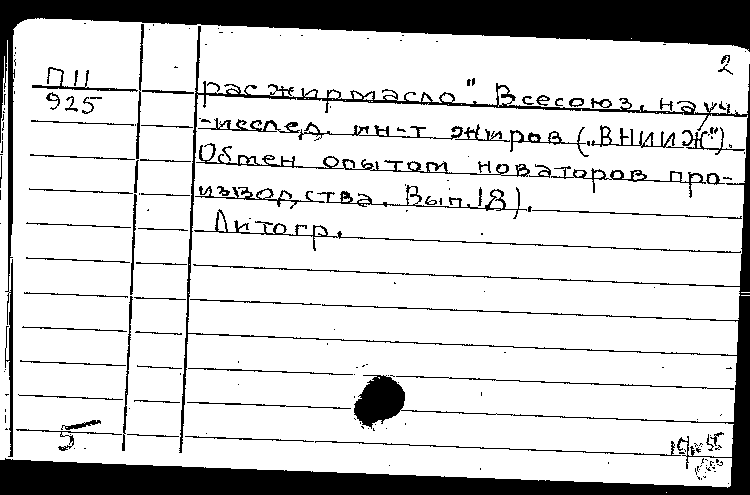 2
П11
925
расжирмасло". Всесоюз. науч.
-исслед. ин-т жиров („ВНИИЖ").
Обмен опытом новаторов про-
изводства. Вып. 18).
Литогр.
5